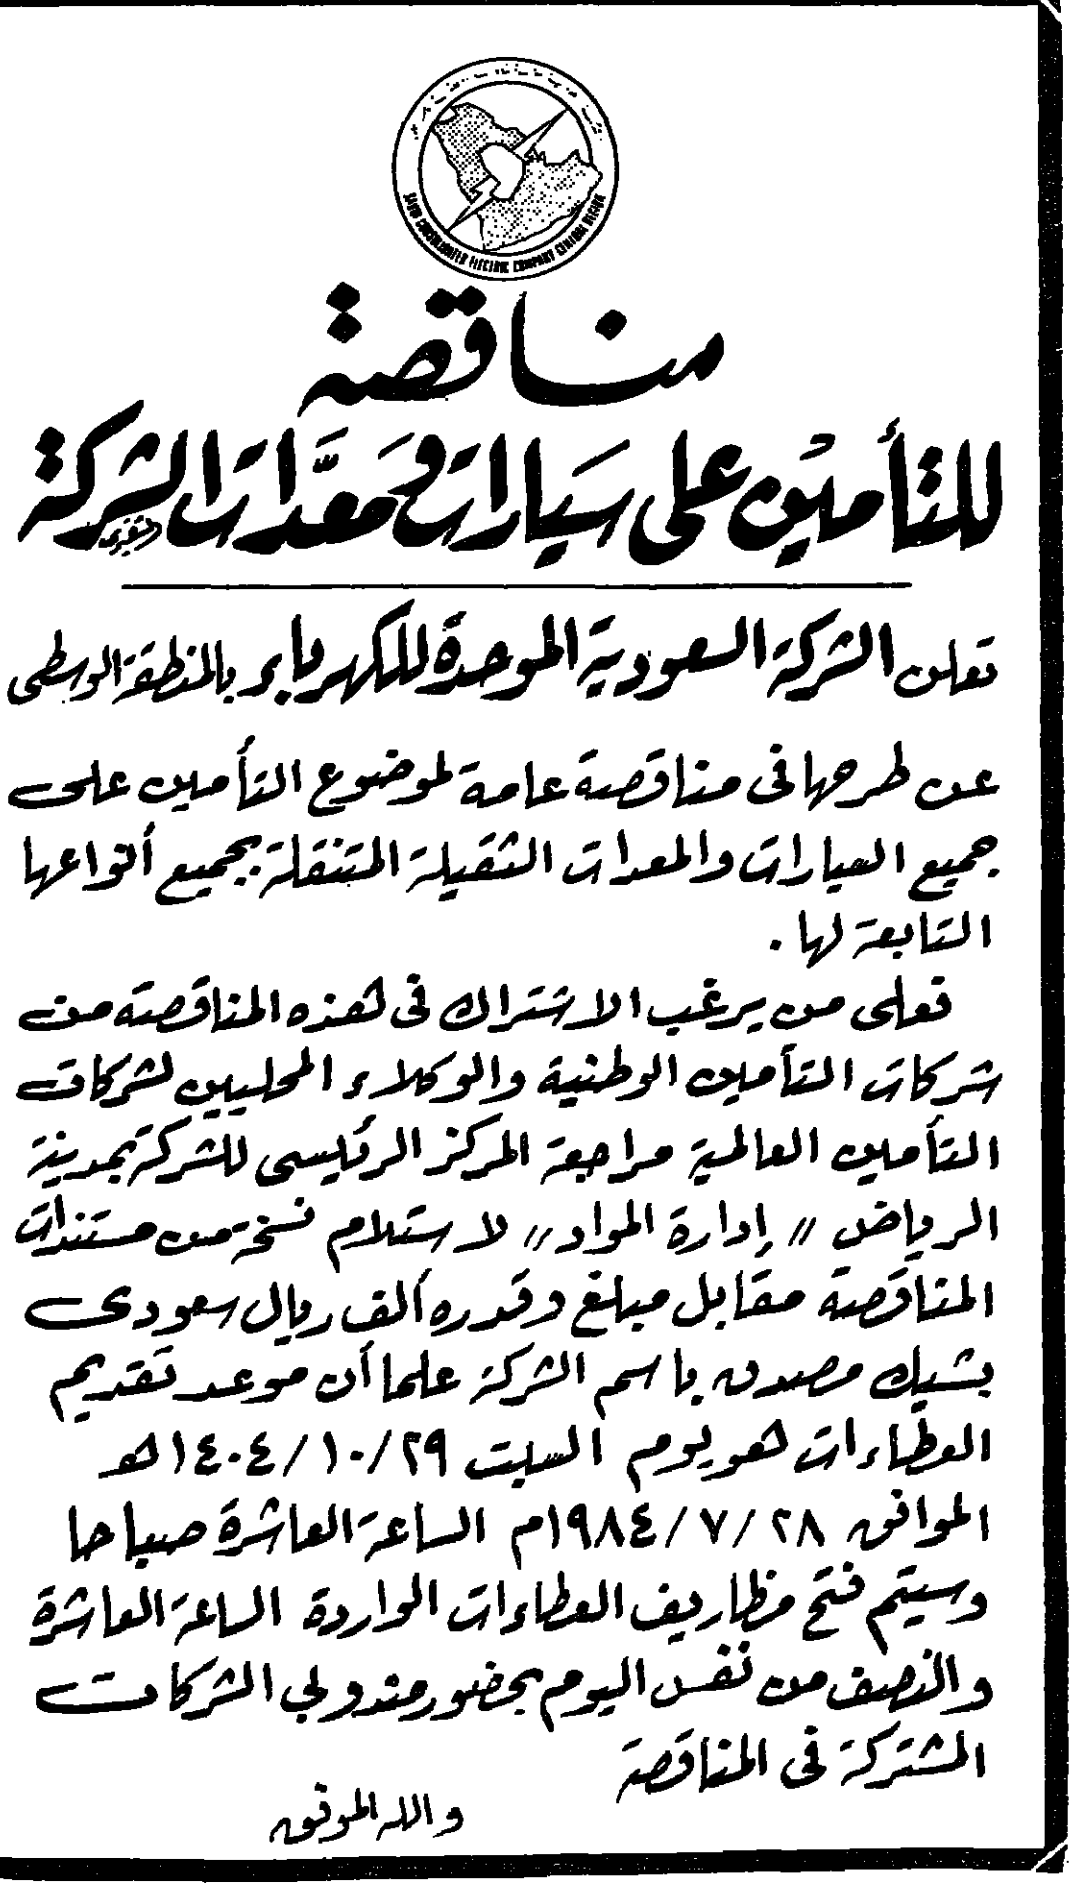 SAUDI CONSOLIDATED ELECTRIC COMPANY CENTRAL REGION
مناقصة
للتأمين على سيارات ومعدات الشركة
تعلن الشركة السعودية الموحدة للكهرباء بالمنطقة الوسطى
عن طرحها فى مناقصة عامة لموضوع التأمين على
جميع السيارات والمعدات الثقيلة المتنقلة بجميع أنواعها
التابعة لها .
فعلى من يرغب الاشتراك فى هذه المناقصة من
شركات التأمين الوطنية والوكلاء المحليين لشركات
التأمين العالمية مراجعة المركز الرئيسى للشركة بمدينة
الرياض // إدارة المواد // لاستلام نسخة من مستندات
المناقصة مقابل مبلغ وقدره ألف ريال سعودى
بشيك مصدق باسم الشركة علما أن موعد تقديم
العطاءات هو يوم السبت ٢٩/١٠/١٤٠٤هـ
الموافق ٢٨/٧/١٩٨٤م الساعة العاشرة صباحا
وسيتم فتح مظاريف العطاءات الواردة الساعة العاشرة
والنصف من نفس اليوم بحضور مندوبي الشركات
المشتركة فى المناقصة
والله الموفق